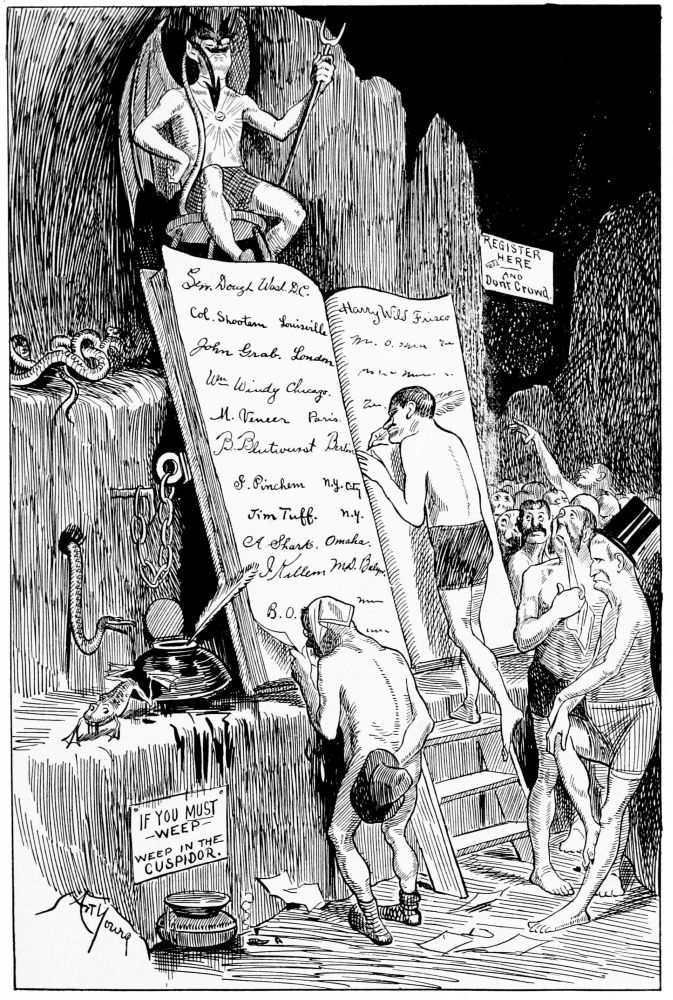 REGISTER
HERE
AND
Don't Crowd.
Sen. Dough West D.C.
Col. Shootem Louisville
John Grab. London
Wm Windy Chicago.
M. Veneer Paris.
B. Blutwurst Berlin
S. Pinchem N.Y. City
Jim Tuff. N.Y.
A Shark. Omaha.
I Killem M.D. Balto.
B.O.
Harry Wild Frisco
IF YOU MUST
WEEP
WEEP IN THE
CUSPIDOR.
Art Young